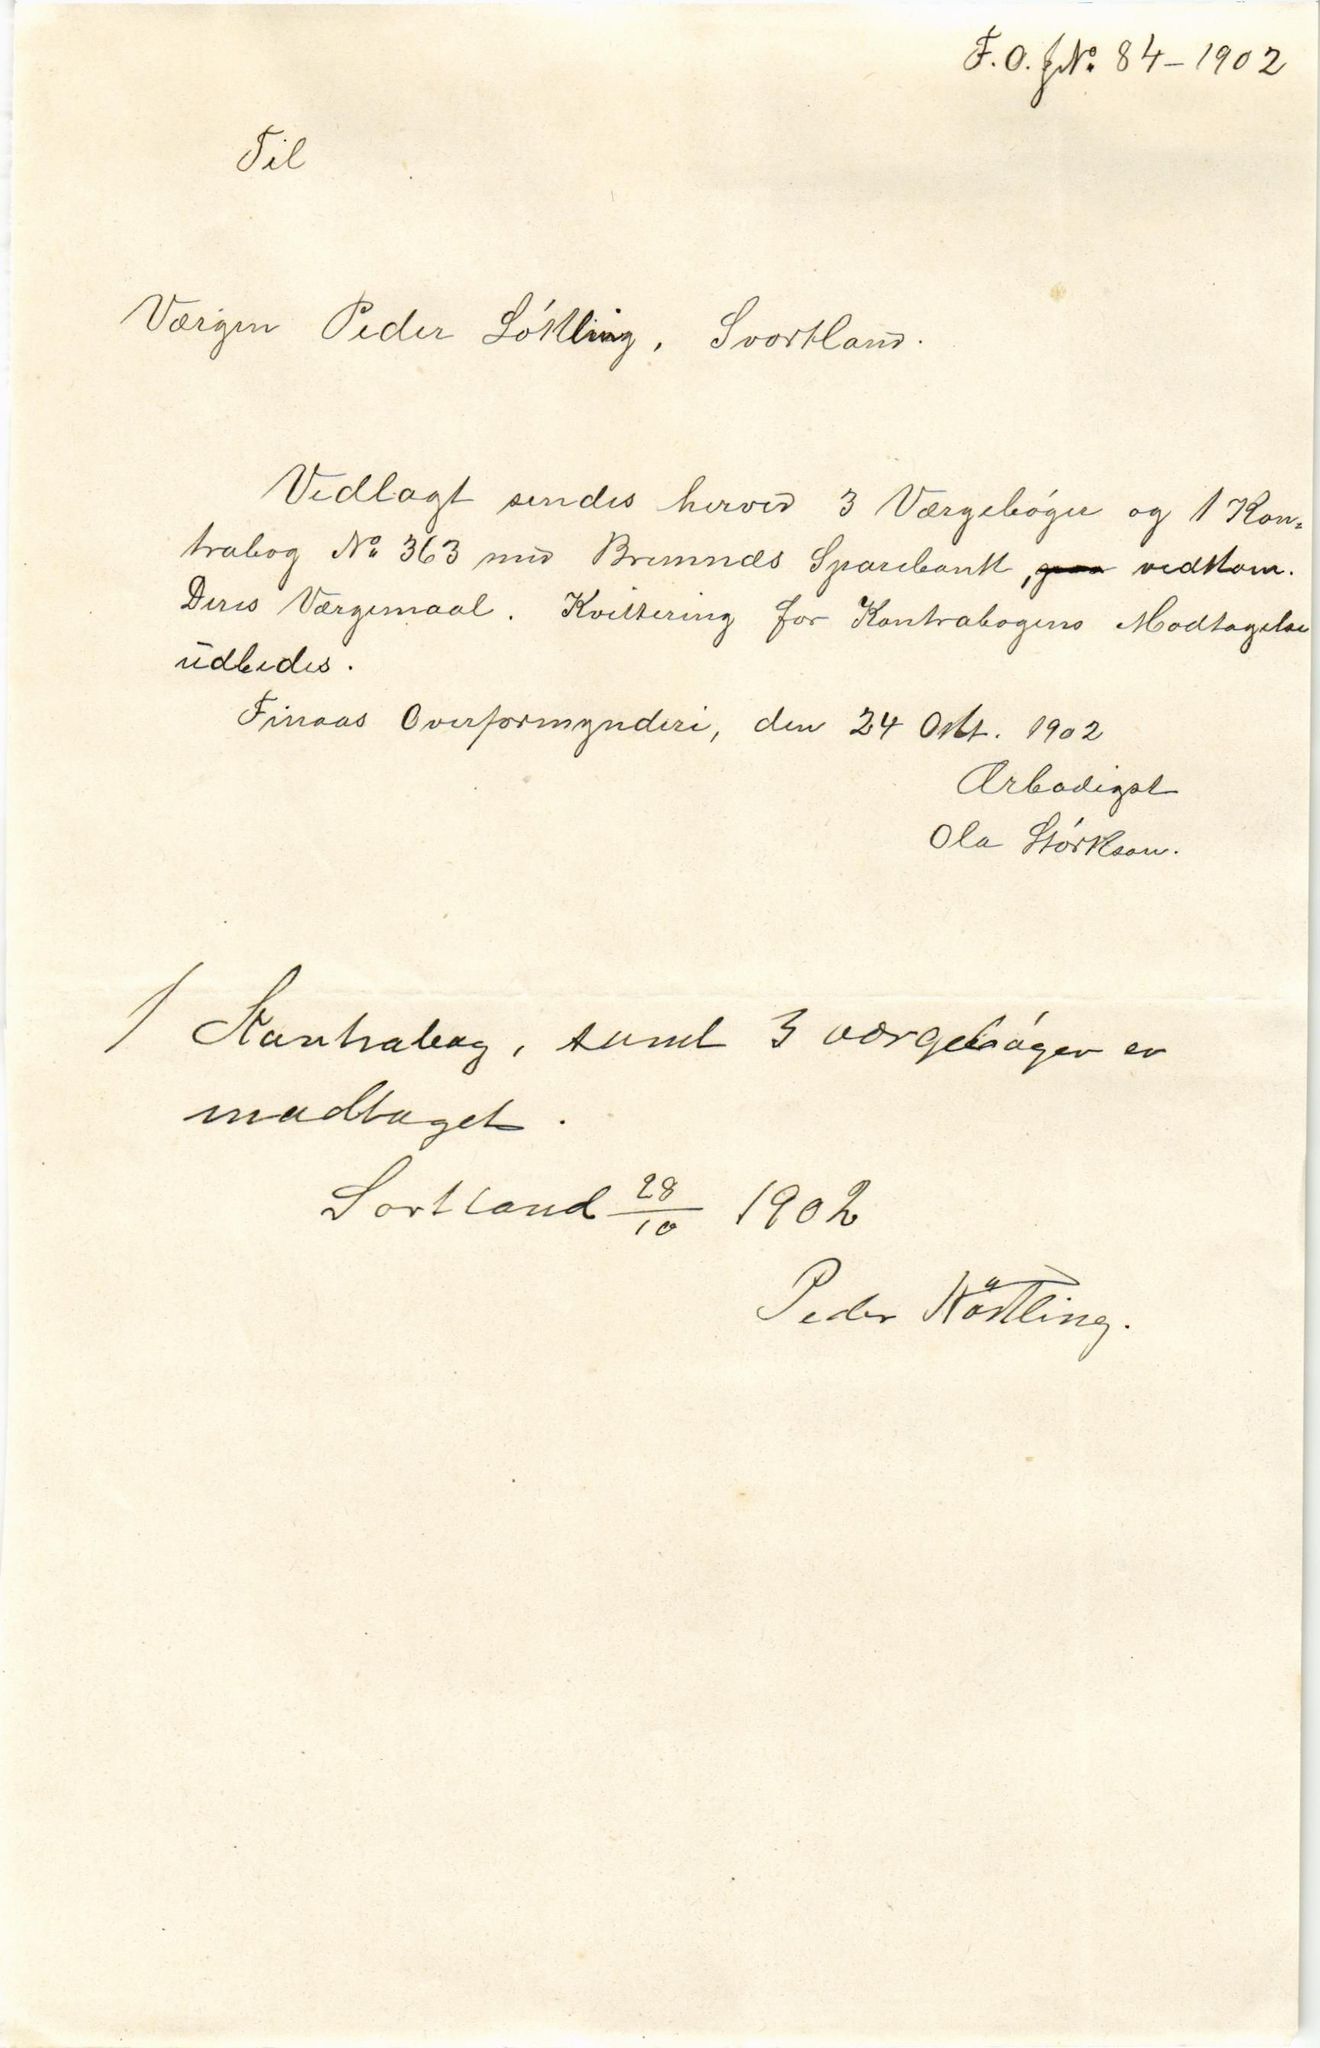 F. O. J.No. 84-1902
Til
Værgen Peder Løkling, Svortland.
Vedlagt sendes herved 3 Værgebøger og 1 Kon-
trabog No. 363 med Bremnæs Sparebank, paa vedkom.
Deres Værgemaal. Kvittering for Kontrabogens Modtagelse
udbedes.
Finaas Overformynderi, den 24 Okt. 1902
Ærbødigst
Ola Størkson.
1 Kontrabog, samt 3 værgebøger er
modtaget.
Sortland 28/10 1902
Peder